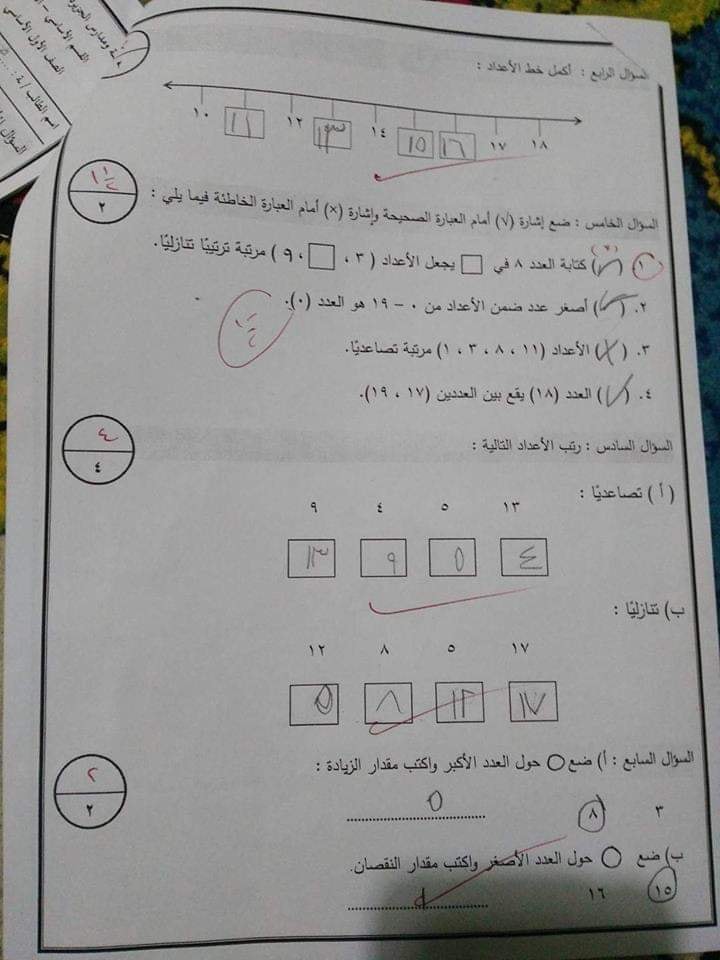 القسم الأساسي - ا
الصف الأول الأساسي
اسم الطالب / ة :
السؤال الأ
السؤال الرابع : أكمل خط الأعداد :
١٠ ١١ ١٢ ١٣ ١٤ ١٥ ١٦ ١٧ ١٨
٢
السؤال الخامس : ضع إشارة (√) أمام العبارة الصحيحة وإشارة (×) أمام العبارة الخاطئة فيما يلي :
١. (√) كتابة العدد ٨ في □ يجعل الأعداد ( ٣ ، □ ، ٩ ) مرتبة ترتيبًا تنازليًا.
٢. (√) أصغر عدد ضمن الأعداد من ٠ - ١٩ هو العدد (٠).
٣. (×) الأعداد (١١ ، ٨ ، ٣ ، ١) مرتبة تصاعديًا.
٤. (√) العدد (١٨) يقع بين العددين (١٧ ، ١٩).
٤
٤
السؤال السادس : رتب الأعداد التالية :
( أ ) تصاعديًا :
١٣ ٥ ٤ ٩
٤ ٥ ٩ ١٣
ب) تنازليًا :
١٧ ٥ ٨ ١٢
١٧ ١٢ ٨ ٥
٢
٢
السؤال السابع : أ) ضع ○ حول العدد الأكبر واكتب مقدار الزيادة :
٣ ٨ ٥
ب) ضع ○ حول العدد الأصغر واكتب مقدار النقصان.
١٥ ١٦ ١